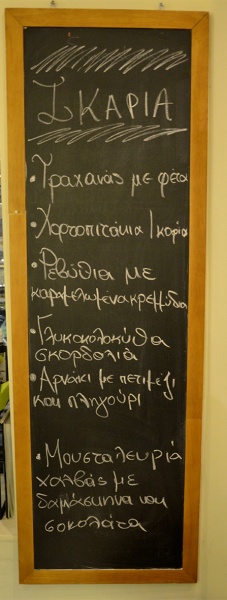 ΙΚΑΡΙΑ
• Τραχανάς με φέτα
• Χορτοπιτάκια Ικαρία
• Ρεβύθια με
καραμελωμένα κρεμμύδια
• Γλυκοκολοκύθα
σκορδαλιά
• Αρνάκι με πετιμέζι
και πληγούρι
• Μουσταλευριά
χαλβάς με
δαμάσκηνα και
σοκολάτα